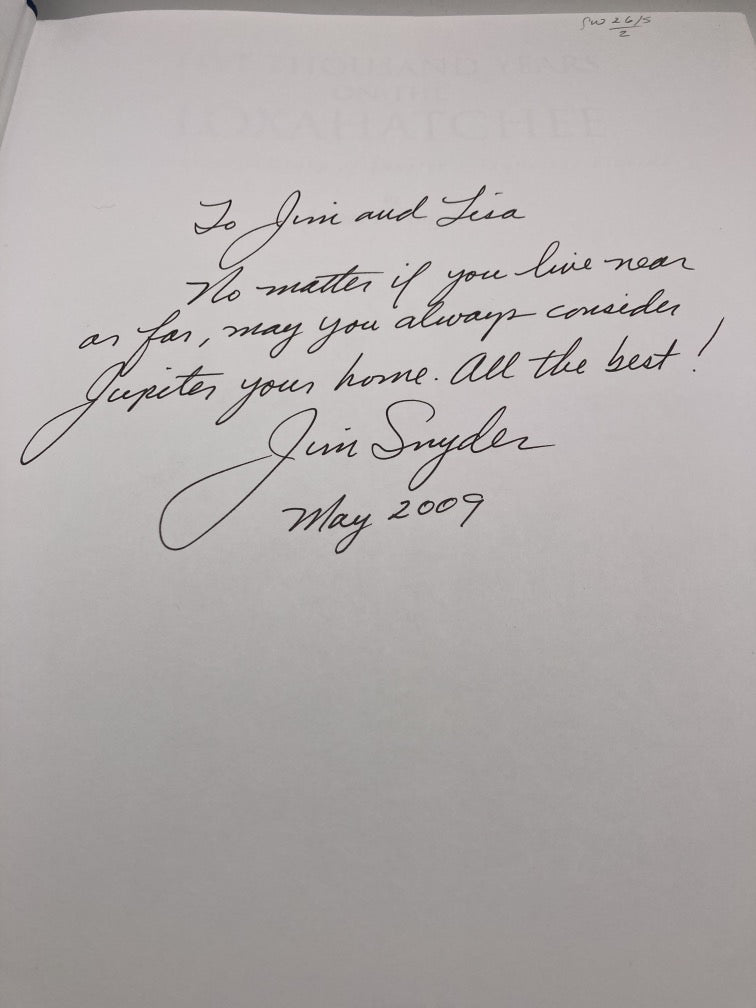 SW 26/5
2
FIVE THOUSAND YEARS
ON THE
LOXAHATCHEE
To Jim and Lisa
No matter if you live near
or far, may you always consider
Jupiter your home. All the best!
Jim Snyder
May 2009